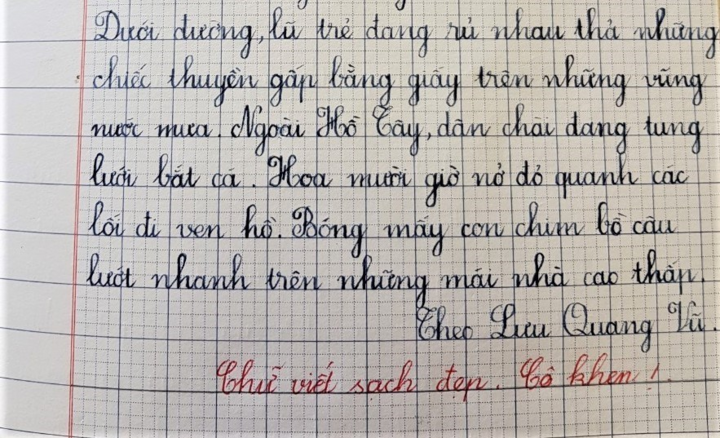 Dưới đường, lũ trẻ đang rủ nhau thả những
chiếc thuyền gấp bằng giấy trên những vũng
nước mưa. Ngoài Hồ Tây, dân chài đang tung
lưới bắt cá. Hoa mười giờ nở đỏ quanh các
lối đi ven hồ. Bóng mấy con chim bồ câu
lướt nhanh trên những mái nhà cao thấp.
Theo Lưu Quang Vũ.
Chữ viết sạch đẹp. Cô khen!